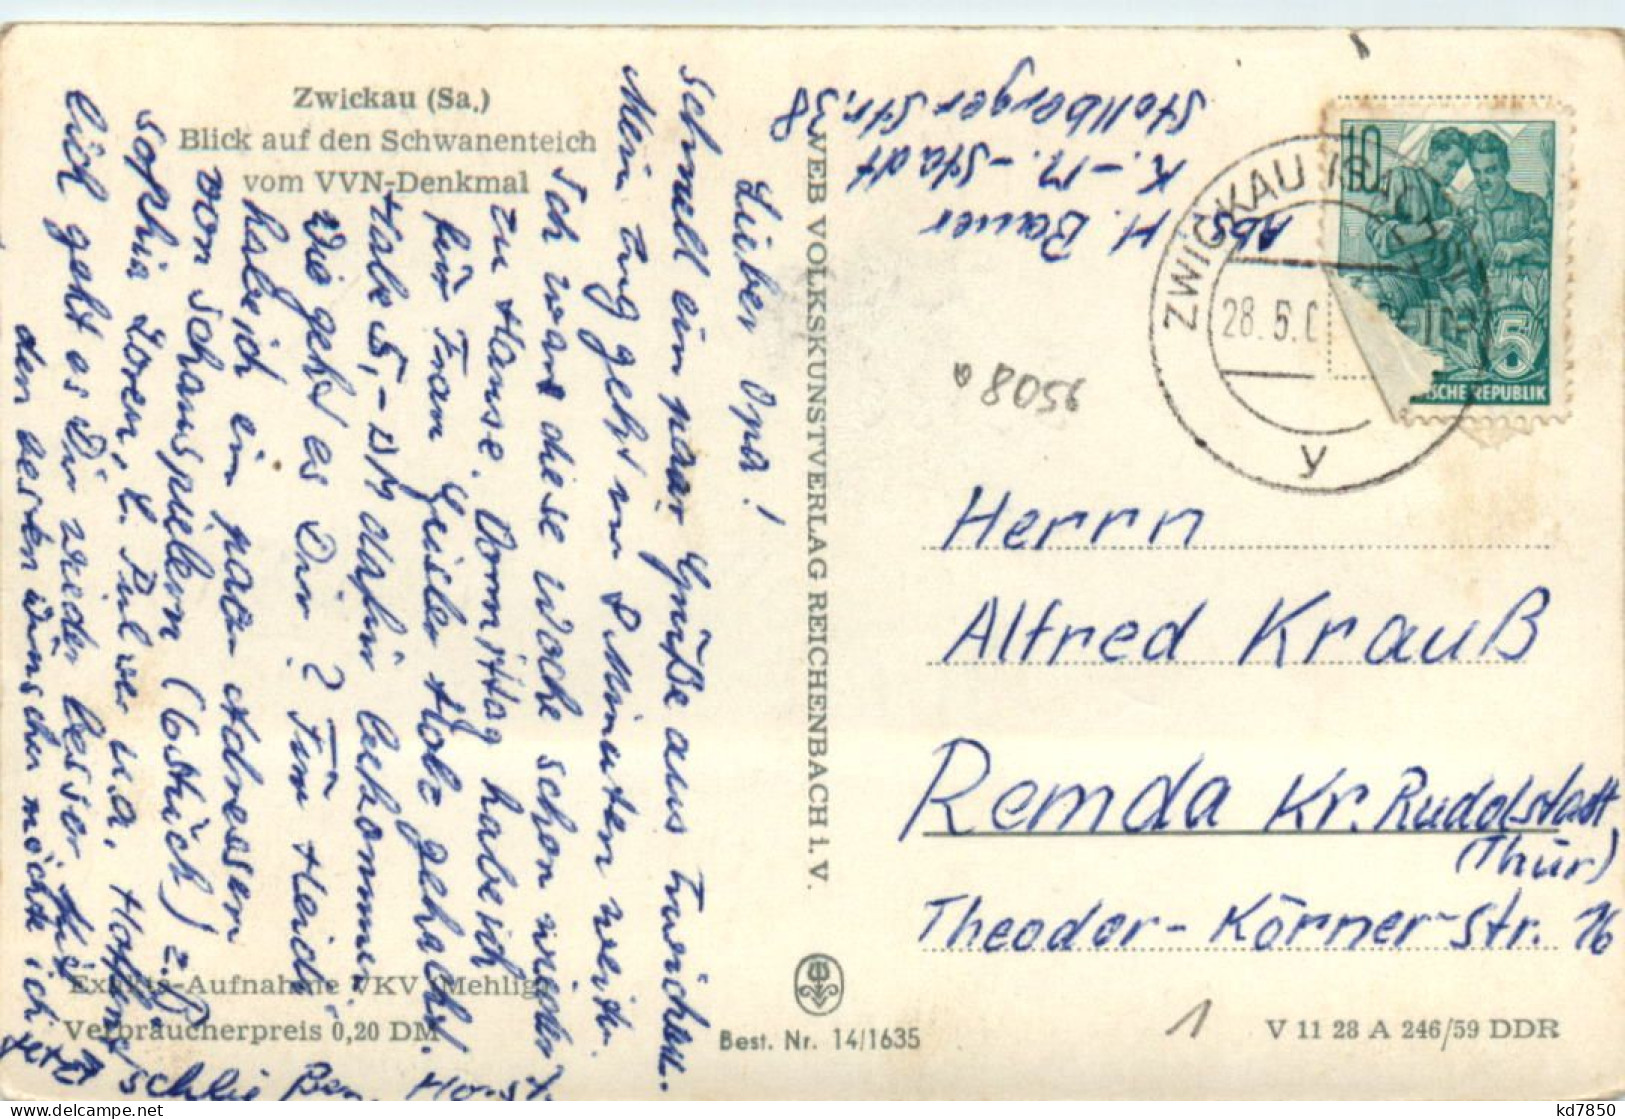 Zwickau (Sa.)
Blick auf den Schwanenteich
vom VVN-Denkmal
Lieber Opa!
Schnell ein paar Grüße aus Zwickau.
Mein Zug geht in 8 Minuten weiter.
Ich war diese Woche schon wieder
zu Hause. Vormittag habe ich
für Frau Geisler Holz gehackt.
Habe 5,- DM dafür bekommen.
Wie geht es Dir? Für Heidi
habe ich ein paar Adressen
von Schauspielern (6 Stück) z.B.
Sophia Loren, L. Pulver u.a. Hoffent-
lich geht es Dir wieder besser. Mit
den besten Wünschen möchte ich
jetzt schließen, Horst.
VEB VOLKSKUNSTVERLAG REICHENBACH i. V.
Abs.
H. Bauer
K.-M.-Stadt
Stollberger Str. 38
ZWICKAU
28.5.6
y
10
5
SCHE REPUBLIK
9508
Herrn
Alfred Krauß
Remda Kr. Rudolstadt
(Thür)
Theodor-Körner-Str. 16
Aufnahme VKV (Mehlig)
Verbraucherpreis 0,20 DM
Best. Nr. 14/1635
1
V 11 28 A 246/59 DDR
kd7850